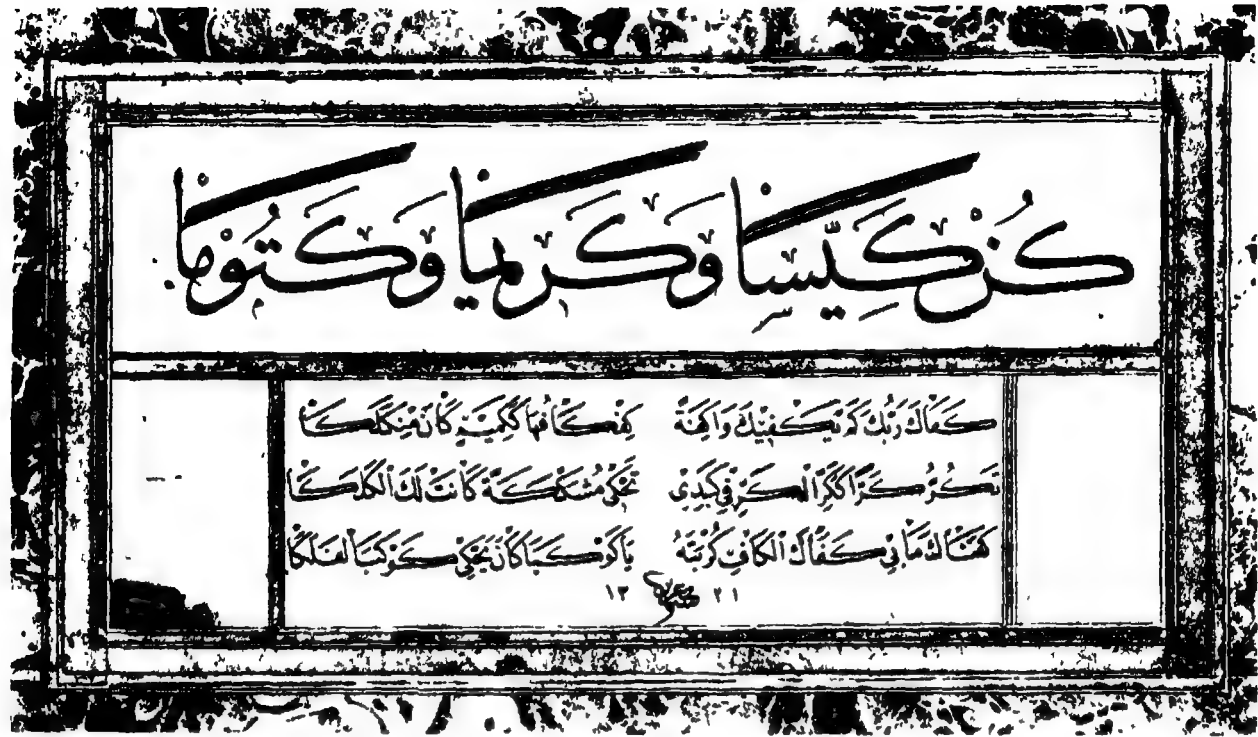 كُنْ كَيِّسًا وَكَرِيمًا وَكَتُومًا
كَفَاكَ رَبُّكَ كَمْ يَكْفِيْكَ وَاكِفَةً كِفْكَافُهَا كَكَمِيْنٍ كَانَ مِنْ كَلَكَا
تَكُرُّ كَرًّا كَكَرِّ الْكَرِّ فِي كَبَدِي تَحْكِي مُشَكْشَكَةً كَانَتْ لَكَ الْكَلَكَا
كَفَاكَ مَا بِي كَفَاكَ الْكَافُ كُرْبَتَهُ يَا كَوْكَبًا كَانَ يَحْكِي كَوْكَبَ الْفَلَكَا
٢١ ١٣